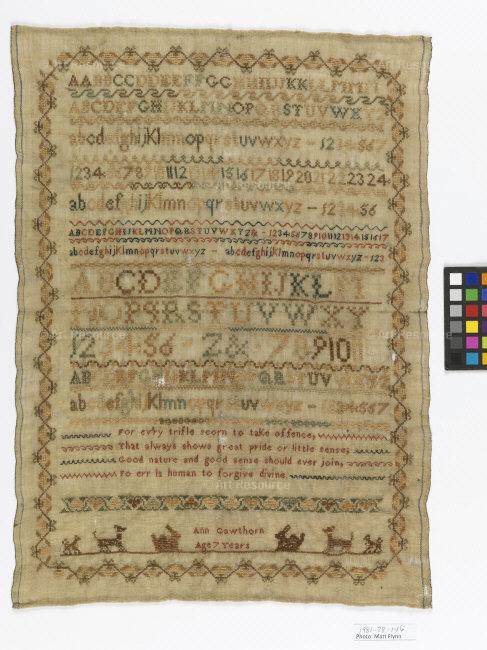 AABBCCDDEEFFGGHHIIJJKKLLMM
ABCDEFGHIJKLMNOPQRSTUVWX
abcdefghijKlmnopqrstuvwxyz – 1234567
123456789101112131415161718192021222324
abcdefghijKlmnopqrstuvwxyz – 123456
ABCDEFGHIJKLMNOPQRSTUVWXYZ& – 1234567891011121314151617
abcdefghijKlmnopqrstuvwxyz – abcdefghijKlmnopqrstuvwxyz – 123
ABCDEFGHIJKLM
NOPQRSTUVWXY
123456 Z& 78910
AB DEFGHIJKLMN QR TUV
abcdefghijKlmn uvwxyz – 1234567
For evry trifle scorn to take offence,
That always shows great pride or little sense,
Good nature and good sense should ever join,
To err is human to forgive divine,
Ann Gawthorn
Age 7 Years
Art Resource
1981-28-146
Photo: Matt Flynn